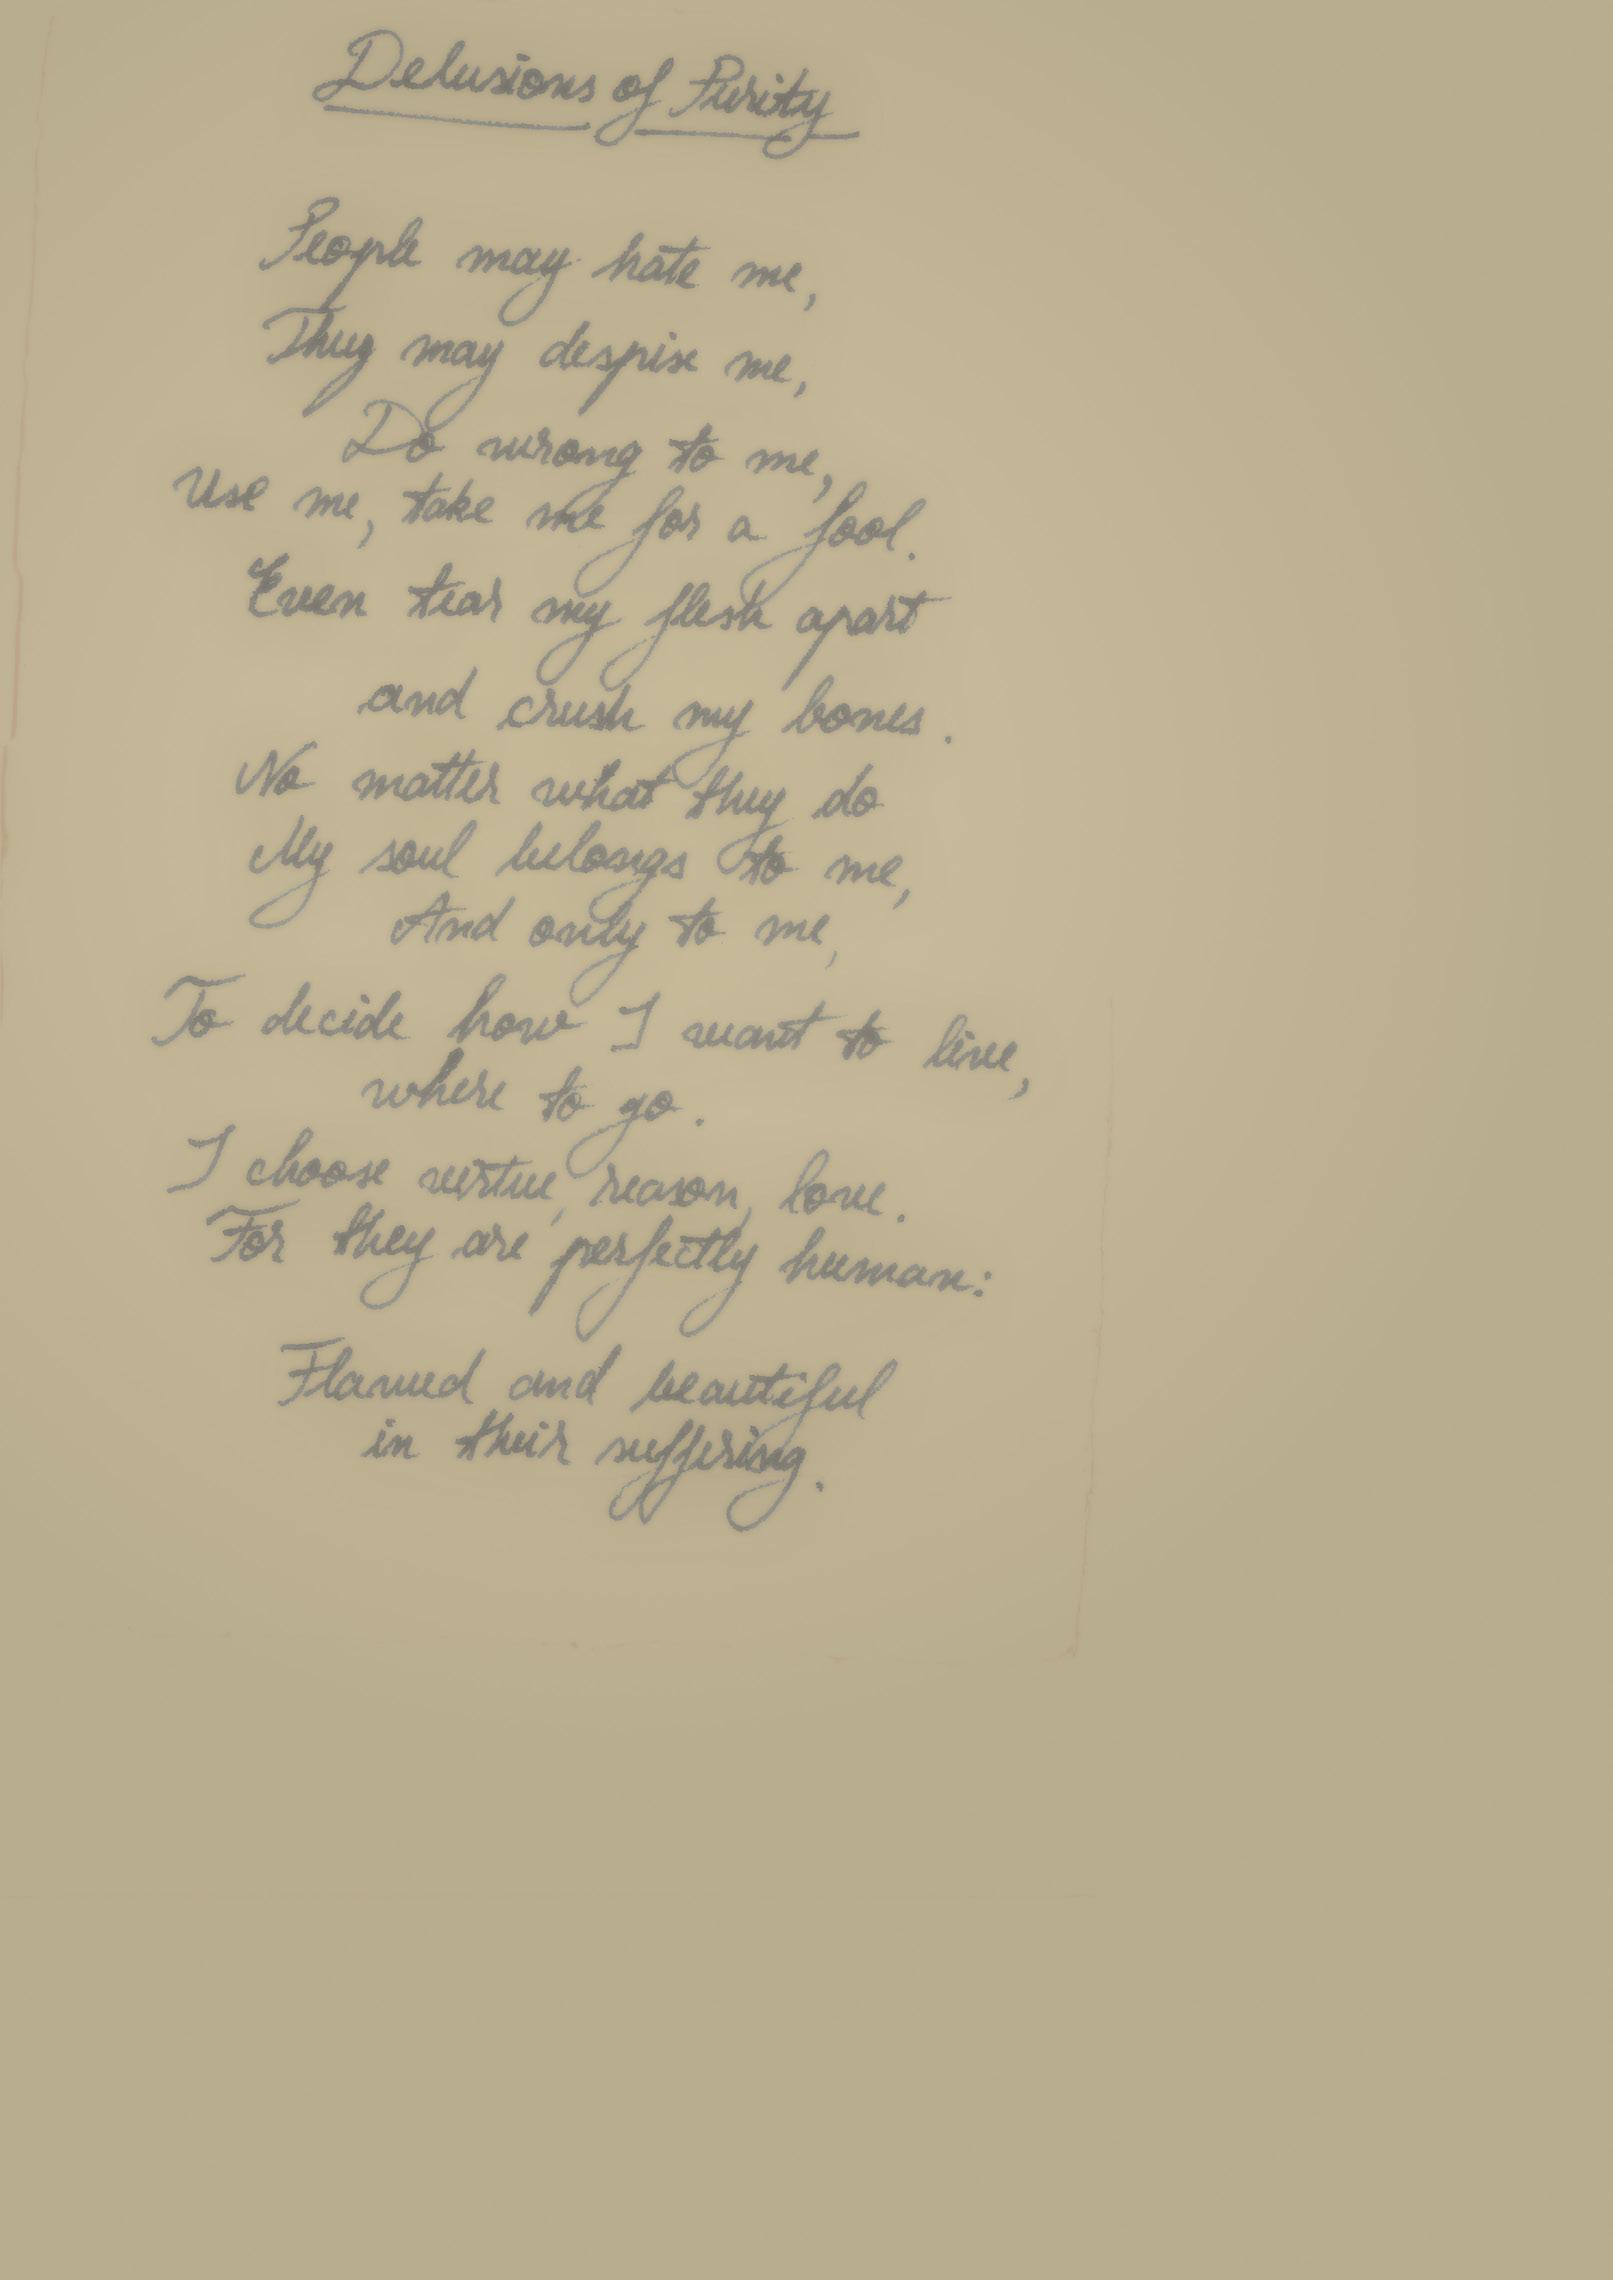 Delusions of Purity
People may hate me,
They may despise me,
Do wrong to me,
Use me, take me for a fool.
Even tear my flesh apart
and crush my bones.
No matter what they do
My soul belongs to me,
And only to me,
To decide how I want to live,
where to go.
I choose virtue, reason, love.
For they are perfectly human:
Flawed and beautiful
in their suffering.